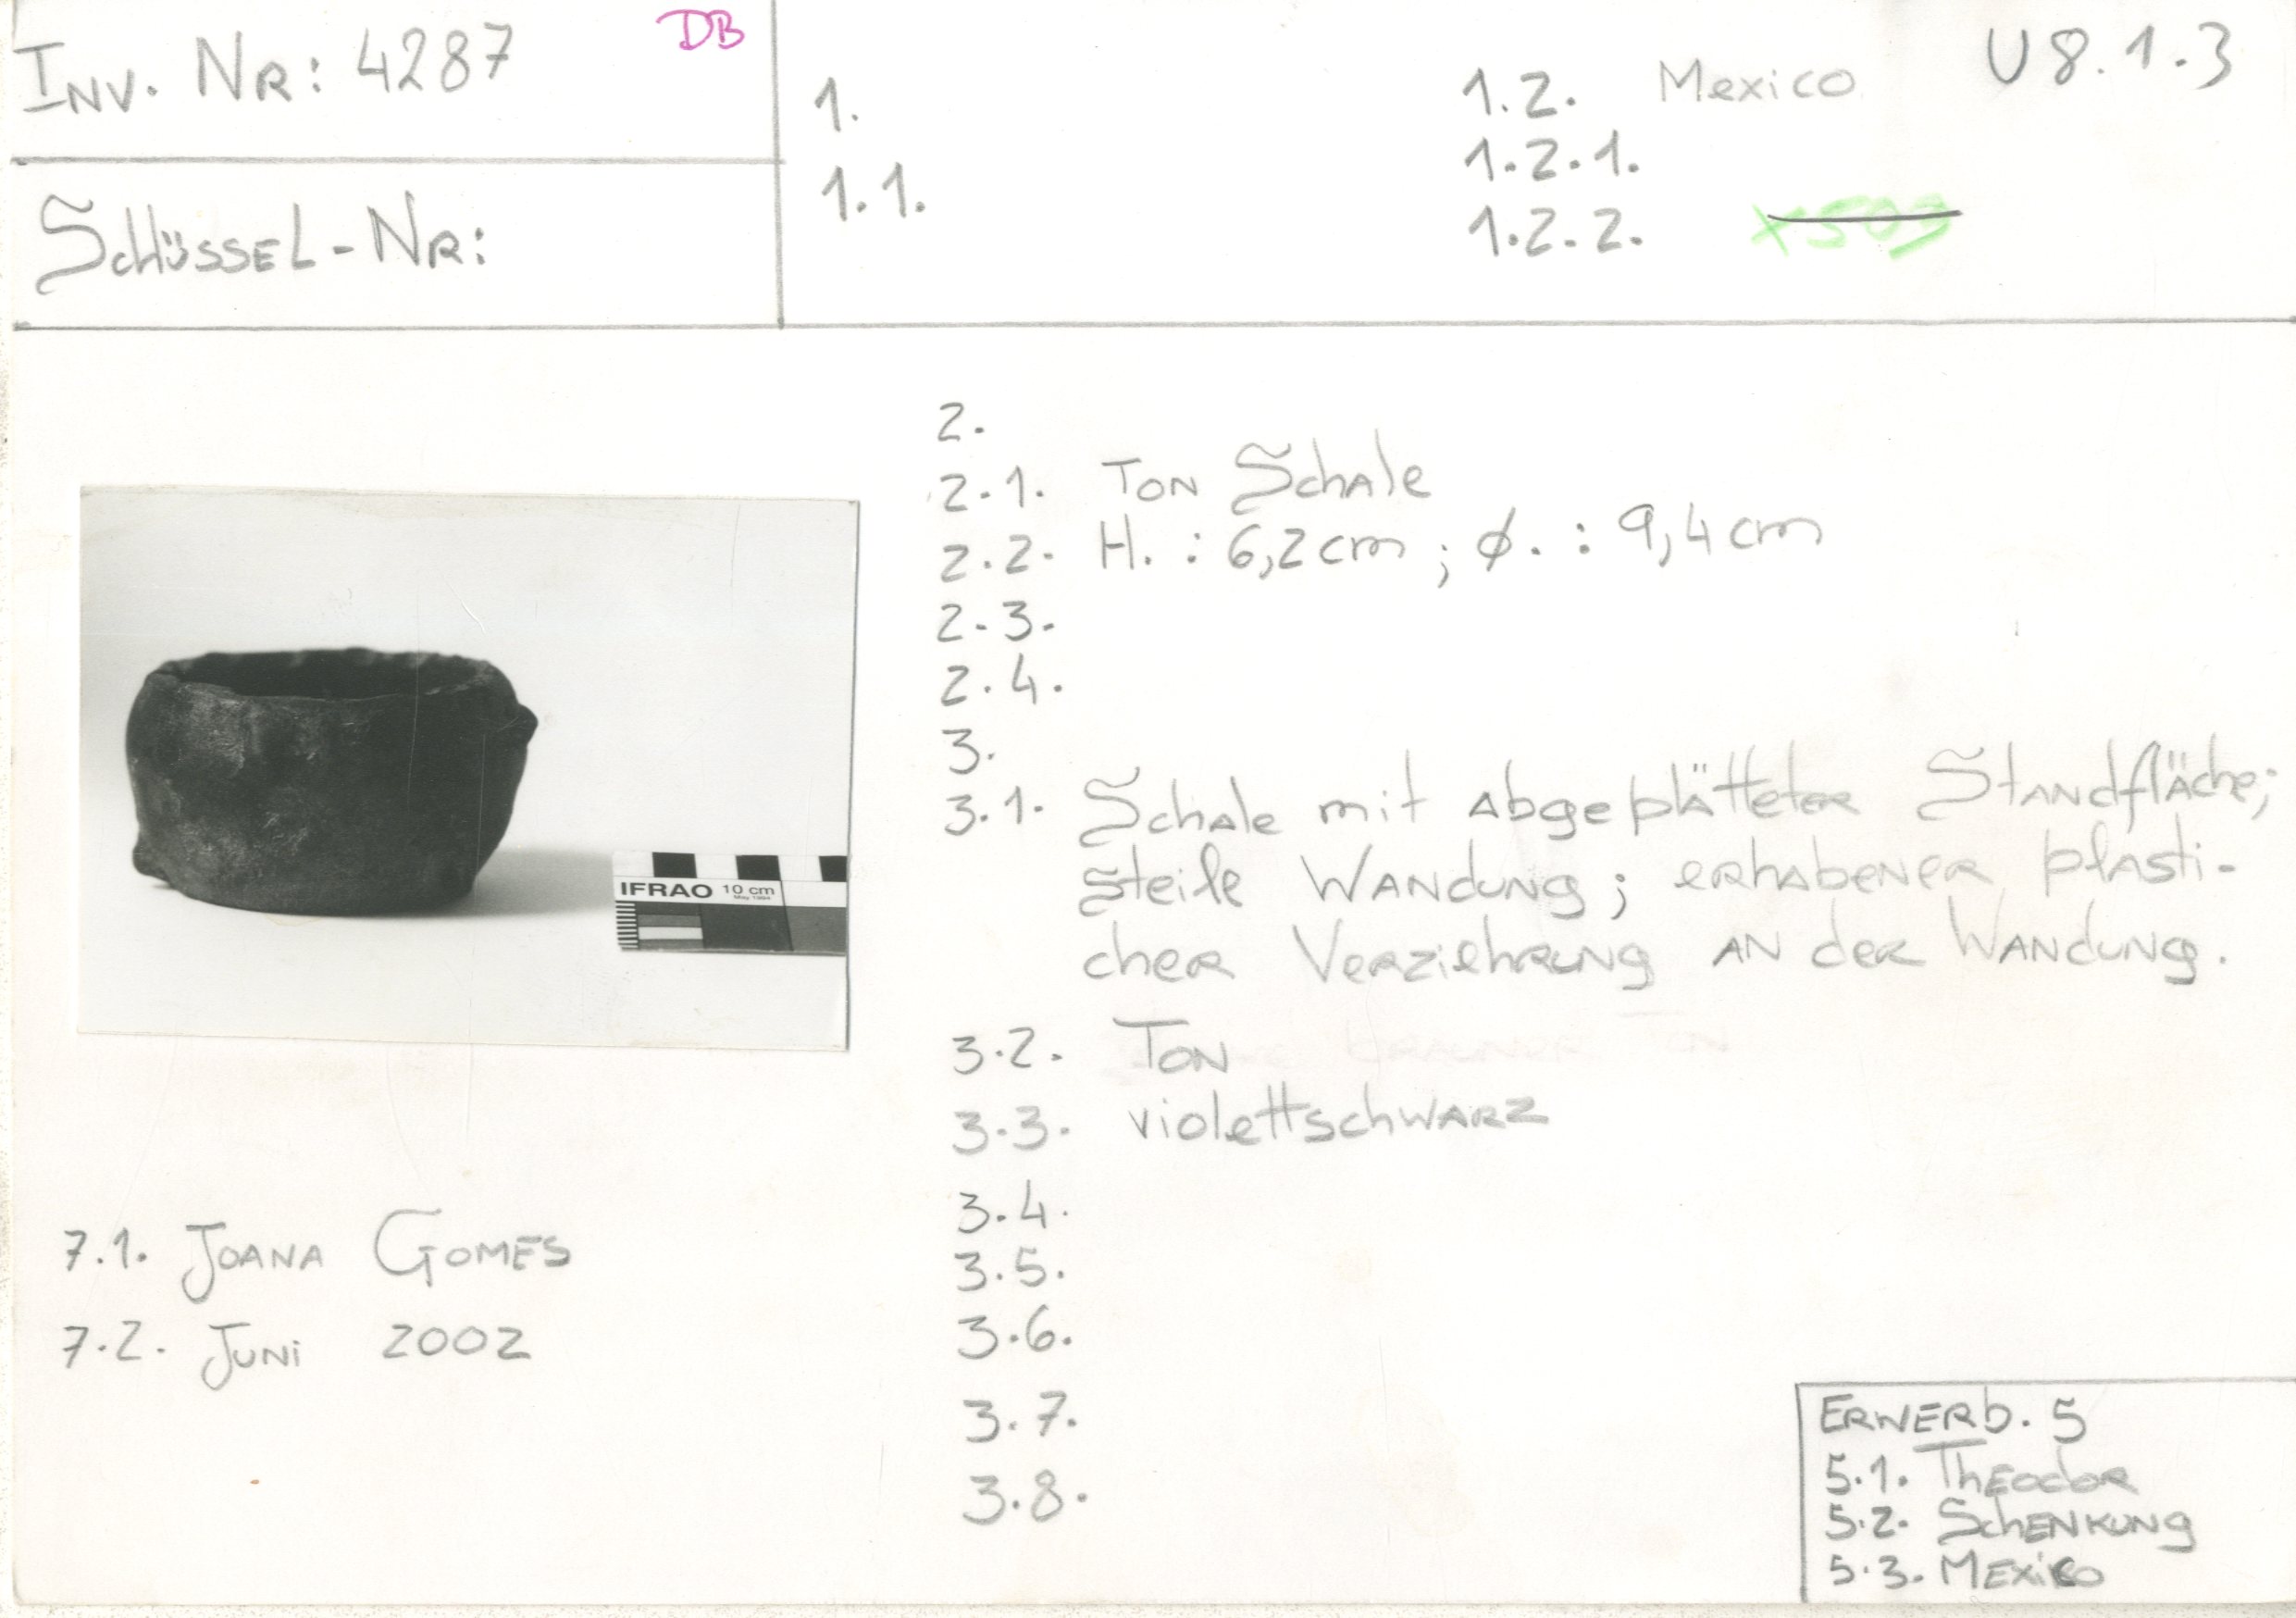 INV. NR: 4287
DB
SCHLÜSSEL-NR:
1.
1.1.
1.2. Mexico
U 8.1.3
1.2.1.
1.2.2. X509
2.
2.1. TON Schale
2.2. H. : 6,2 cm ; ø. : 9,4 cm
2.3.
2.4.
3.
3.1. Schale mit abgeplätteter Standfläche;
steile Wandung; erhabener plasti-
cher Verziehrung an der Wandung.
3.2. TON
brauner Ton
3.3. violettschwarz
3.4.
3.5.
3.6.
3.7.
3.8.
IFRAO 10 cm
May 1994
7.1. JOANA GOMES
7.2. JUNI 2002
ERWERb. 5
5.1. THEODOR
5.2. SCHENKUNG
5.3. MEXICO